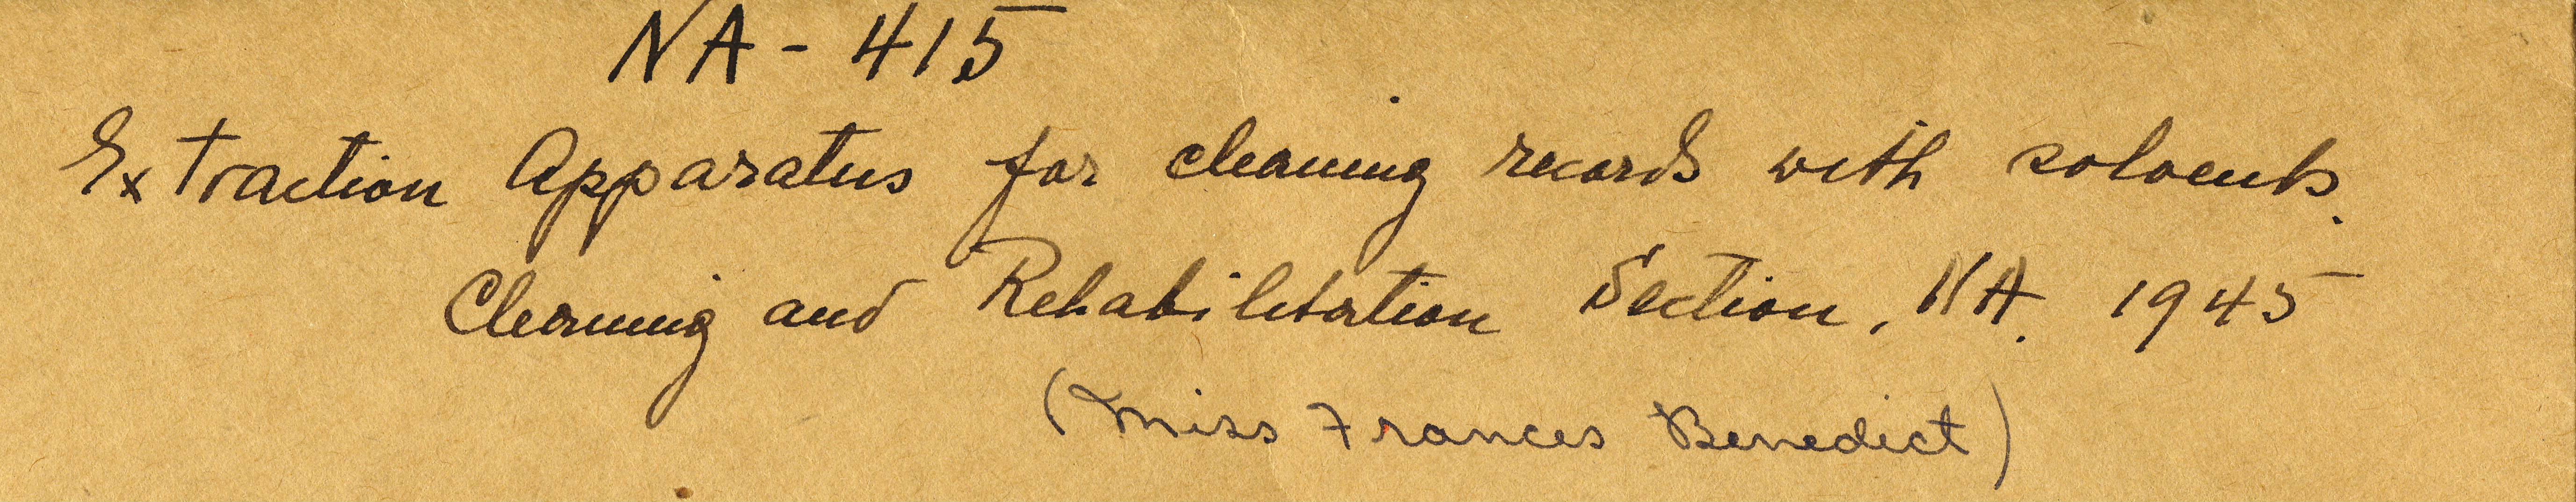 NA - 415
Extraction Apparatus for cleaning records with solvents.
Cleaning and Rehabilitation Section, NA. 1945
(Miss Frances Benedict)